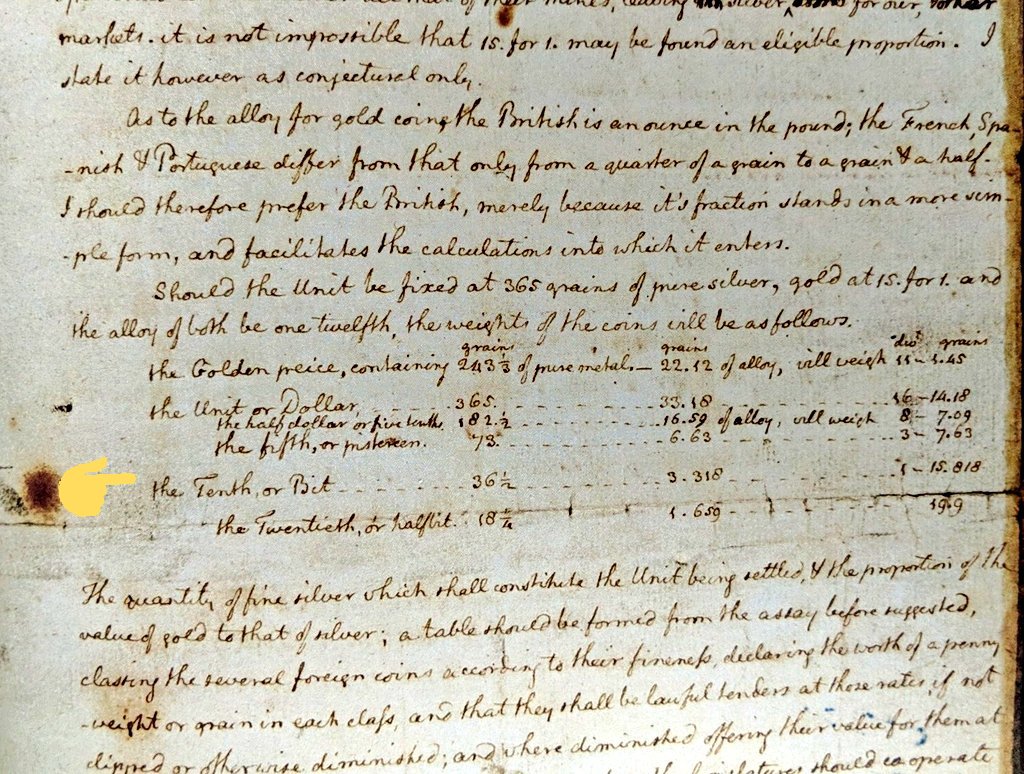 of their mines, leaving silver for our, other
markets. it is not impossible that 15. for 1. may be found an eligible proportion. I
state it however as conjectural only.
As to the alloy for gold coin, the British is an ounce in the pound; the French, Spa-
-nish & Portuguese differ from that only from a quarter of a grain to a grain & a half.
I should therefore prefer the British, merely because it's fraction stands in a more sim-
-ple form, and facilitates the calculations into which it enters.
Should the Unit be fixed at 365 grains of pure silver, gold at 15. for 1. and
the alloy of both be one twelfth, the weights of the coins will be as follows.
grains grains dwt grains
the Golden peice, containing 243⅓ of pure metal, — 22.12 of alloy, will weigh 11 — 1.45
the Unit or Dollar 365. 33.18 16 — 14.18
the half dollar or five tenths 182.½ 16.59 of alloy, will weigh 8 — 7.09
the fifth, or pistereen. 73. 6.63 3 — 7.63
the Tenth, or Bit 36½ 3.318 1 — 15.818
the Twentieth, or halfbit. 18¼ 1.659 19.9
The quantity of fine silver which shall constitute the Unit being settled, & the proportion of the
value of gold to that of silver; a table should be formed from the assay before suggested,
classing the several foreign coins according to their fineness, declaring the worth of a penny-
-weight or grain in each class, and that they shall be lawful tenders at those rates, if not
clipped or otherwise diminished; and where diminished offering their value for them at
should co operate